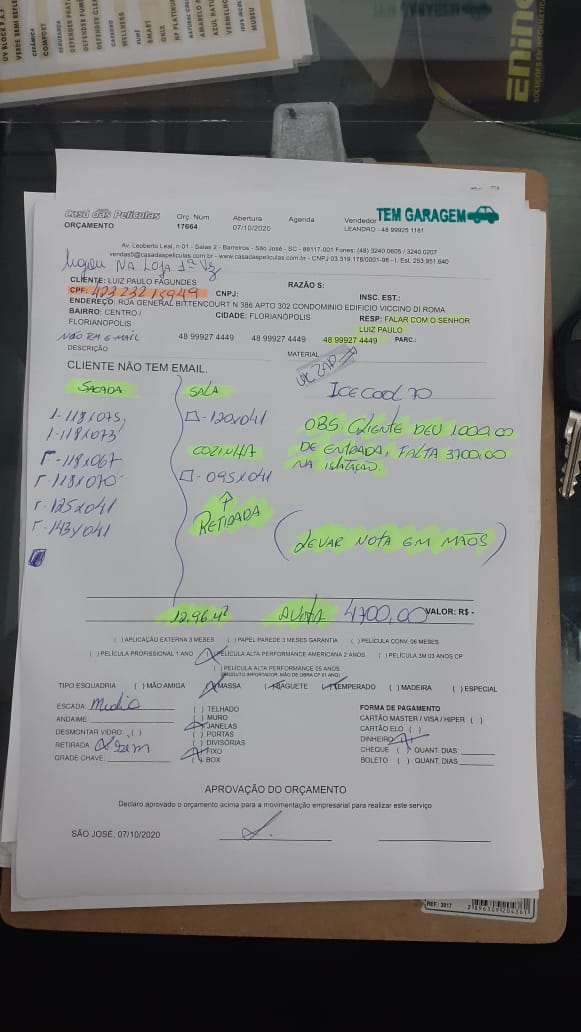 ENinc
SOLUÇÕES EM INFORMÁTICA
CERÂMICA
COMFORT
WELLNESS
SMART
ONIX
Casa das Películas
ORÇAMENTO
Orç. Núm
17664
Abertura
07/10/2020
Agenda
Vendedor
LEANDRO - 48 99925 1161
TEM GARAGEM
Av. Leoberto Leal, n 01 - Salas 2 - Barreiros - São José - SC - 88117-001 Fones: (48) 3240 0605 / 3240 0207
vendas5@casadaspeliculas.com.br - www.casadaspeliculas.com.br - CNPJ 03.319.178/0001-98 - I. Est. 253.951.640
ligou NA LOJA 1ª VZ
CLIENTE: LUIZ PAULO FAGUNDES
RAZÃO S:
CPF:
CNPJ:
INSC. EST.:
ENDEREÇO: RUA GENERAL BITTENCOURT N 386 APTO 302 CONDOMINIO EDIFICIO VICCINO DI ROMA
BAIRRO: CENTRO /
FLORIANÓPOLIS
CIDADE: FLORIANÓPOLIS
RESP: FALAR COM O SENHOR
LUIZ PAULO
NÃO TEM E-MAIL
48 99927 4449
48 99927 4449
48 99927 4449
PARC.:
DESCRIÇÃO
MATERIAL
CLIENTE NÃO TEM EMAIL.
SACADA
SALA
ICECOOL 70
1-118X075
1-118X073
-118X067
-118X070
-125X041
-143X041
-120X041
COZINHA
-095X041
RETIRADA
OBS CLIENTE DEU 1000,00
DE ENTRADA, FALTA 3700,00
NA
(LEVAR NOTA EM MÃOS)
12,96 M²
AVISTA
4700,00
VALOR: R$ -
( ) APLICAÇÃO EXTERNA 3 MESES ( ) PAPEL PAREDE 3 MESES GARANTIA ( ) PELÍCULA CONV. 06 MESES
( ) PELÍCULA PROFISSIONAL 1 ANO ( ) PELÍCULA ALTA PERFORMANCE AMERICANA 2 ANOS ( ) PELÍCULA 3M 03 ANOS CP
( ) PELÍCULA ALTA PERFORMANCE 05 ANOS
PRODUTO IMPORTADOR, MÃO DE OBRA CP 01 ANO
TIPO ESQUADRIA ( ) MÃO AMIGA ( ) MASSA ( ) BAGUETE ( ) TEMPERADO ( ) MADEIRA ( ) ESPECIAL
ESCADA Media
ANDAIME
DESMONTAR VIDRO: ( )
RETIRADA Sem
GRADE CHAVE:
( ) TELHADO
( ) MURO
( ) JANELAS
( ) PORTAS
( ) DIVISÓRIAS
( ) FIXO
( ) BOX
FORMA DE PAGAMENTO
CARTÃO MASTER / VISA / HIPER ( )
CARTÃO ELO ( )
DINHEIRO ( )
CHEQUE ( ) QUANT. DIAS:
BOLETO ( ) QUANT. DIAS
APROVAÇÃO DO ORÇAMENTO
Declaro aprovado o orçamento acima para a movimentação empresarial para realizar este serviço
SÃO JOSÉ, 07/10/2020
REF.: 3017